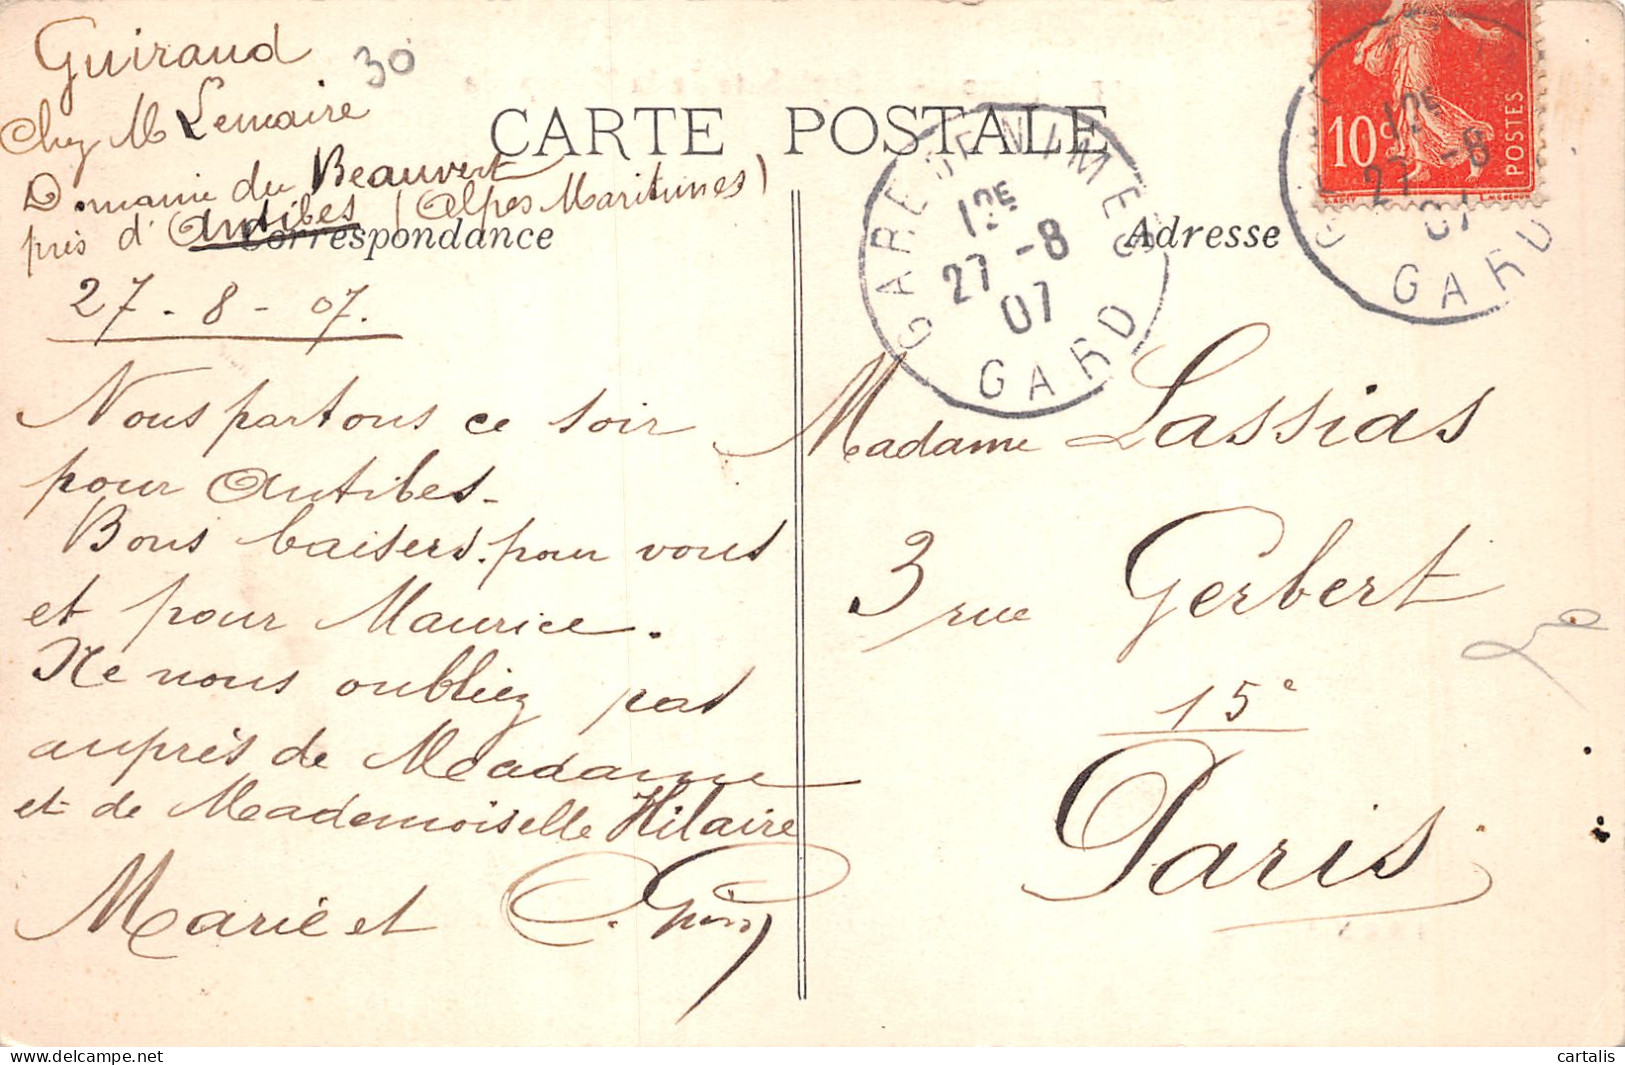 Guiraud
30
Chez M Lemaire
Domaine du Beauvert
près d'Antibes (Alpes Maritimes)
27-8-07.
CARTE POSTALE
Correspondance
Adresse
Nous partons ce soir
pour Antibes-
Bons baisers pour vous
et pour Maurice.
Ne nous oubliez pas
auprès de Madame
et de Mademoiselle Hilaire
Marie et
GARE DE NIMES
12E
27 -8
07
GARD
10c
POSTES
12E
27 -8
07
GARD
Madame Lassias
3 rue Gerbert
15e
Paris
www.delcampe.net
cartalis